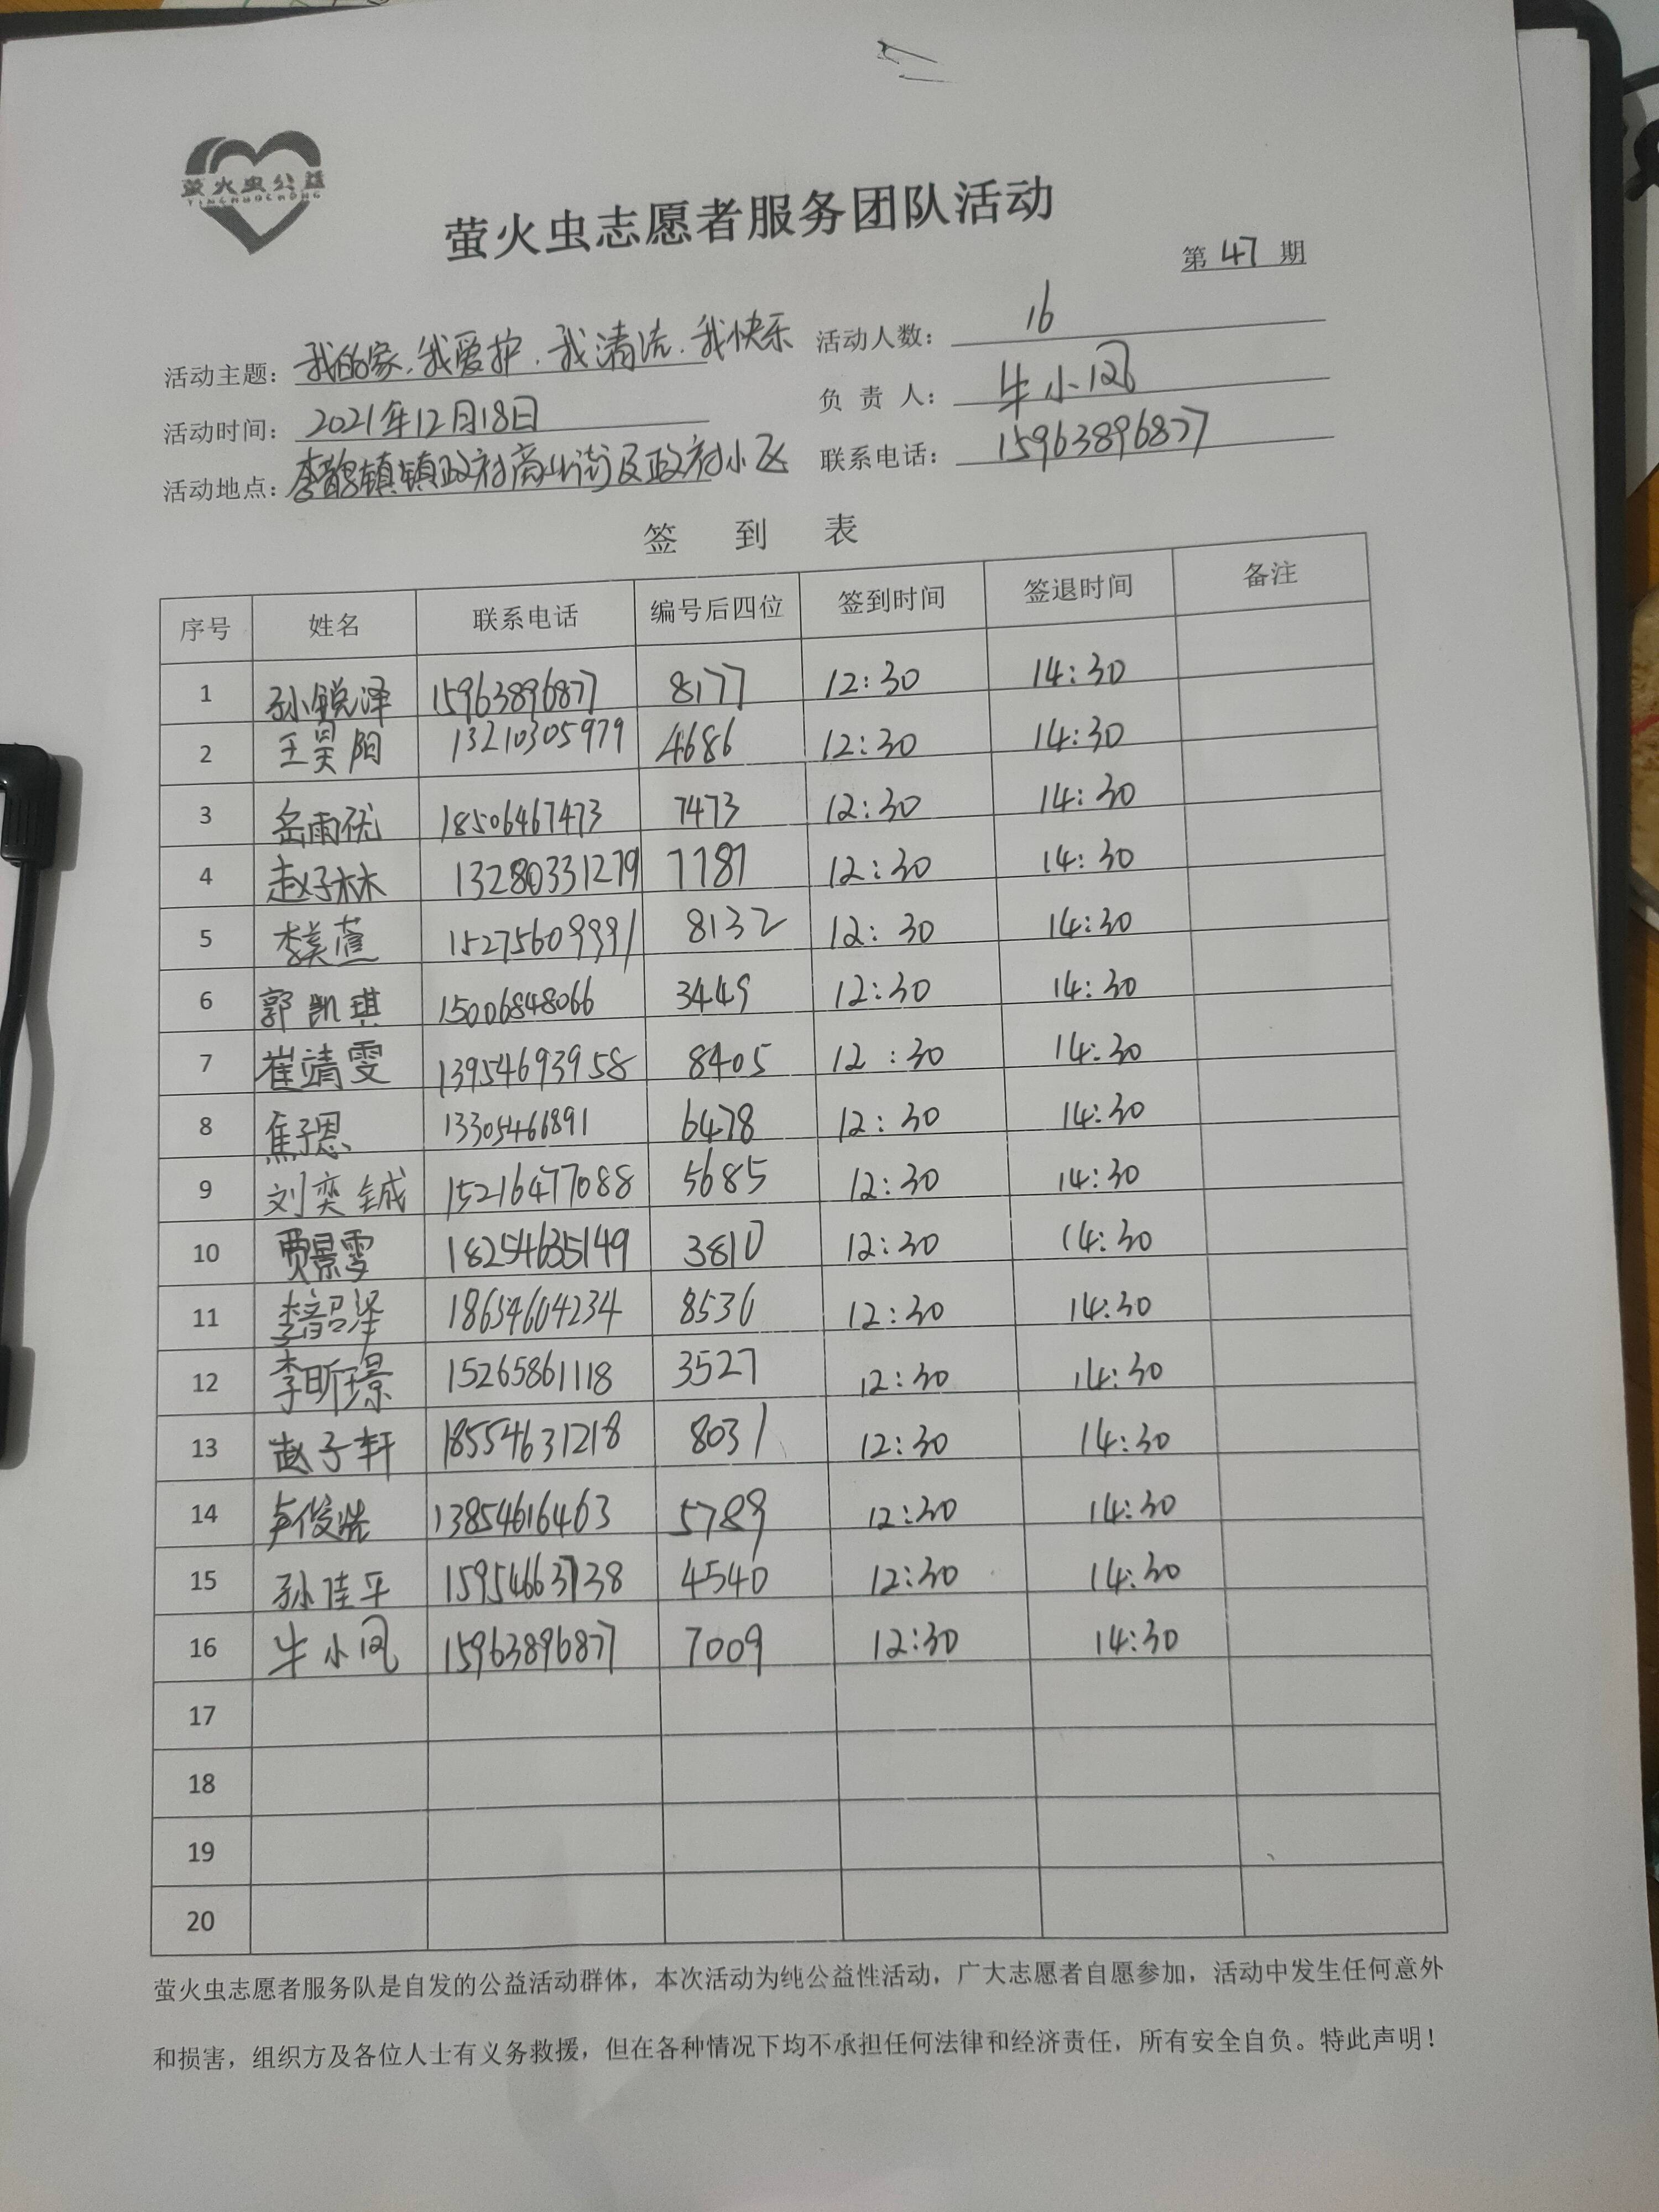 萤火虫公益
YINGHUOCHONG
萤火虫志愿者服务团队活动
第 47 期
活动主题: 我的家.我爱护.我清洁.我快乐 活动人数: 16
活动时间: 2021年12月18日 负 责 人: 牛小凤
活动地点: 李鹊镇镇政府商业街及政府小区 联系电话: 15963896877
签 到 表
序号 姓名 联系电话 编号后四位 签到时间 签退时间 备注
1 孙锐泽 15963896877 8177 12:30 14:30
2 王昊阳 13210305979 4686 12:30 14:30
3 岳雨优 18506467473 7473 12:30 14:30
4 赵子林 13280331279 7787 12:30 14:30
5 李美萱 15275609991 8132 12:30 14:30
6 郭凯琪 15006848066 3449 12:30 14:30
7 崔靖雯 13954693958 8405 12:30 14:30
8 焦子恩 13305466891 6478 12:30 14:30
9 刘奕铖 15216477088 5685 12:30 14:30
10 贾景雯 18254635149 3810 12:30 14:30
11 李韶泽 18654604234 8536 12:30 14:30
12 李昕璟 15265861118 3527 12:30 14:30
13 赵子轩 18554631218 8031 12:30 14:30
14 卢俊皓 13854616463 5789 12:30 14:30
15 孙佳平 15954663738 4540 12:30 14:30
16 牛小凤 15963896877 7009 12:30 14:30
17
18
19
20
萤火虫志愿者服务队是自发的公益活动群体，本次活动为纯公益性活动，广大志愿者自愿参加，活动中发生任何意外
和损害，组织方及各位人士有义务救援，但在各种情况下均不承担任何法律和经济责任，所有安全自负。特此声明！